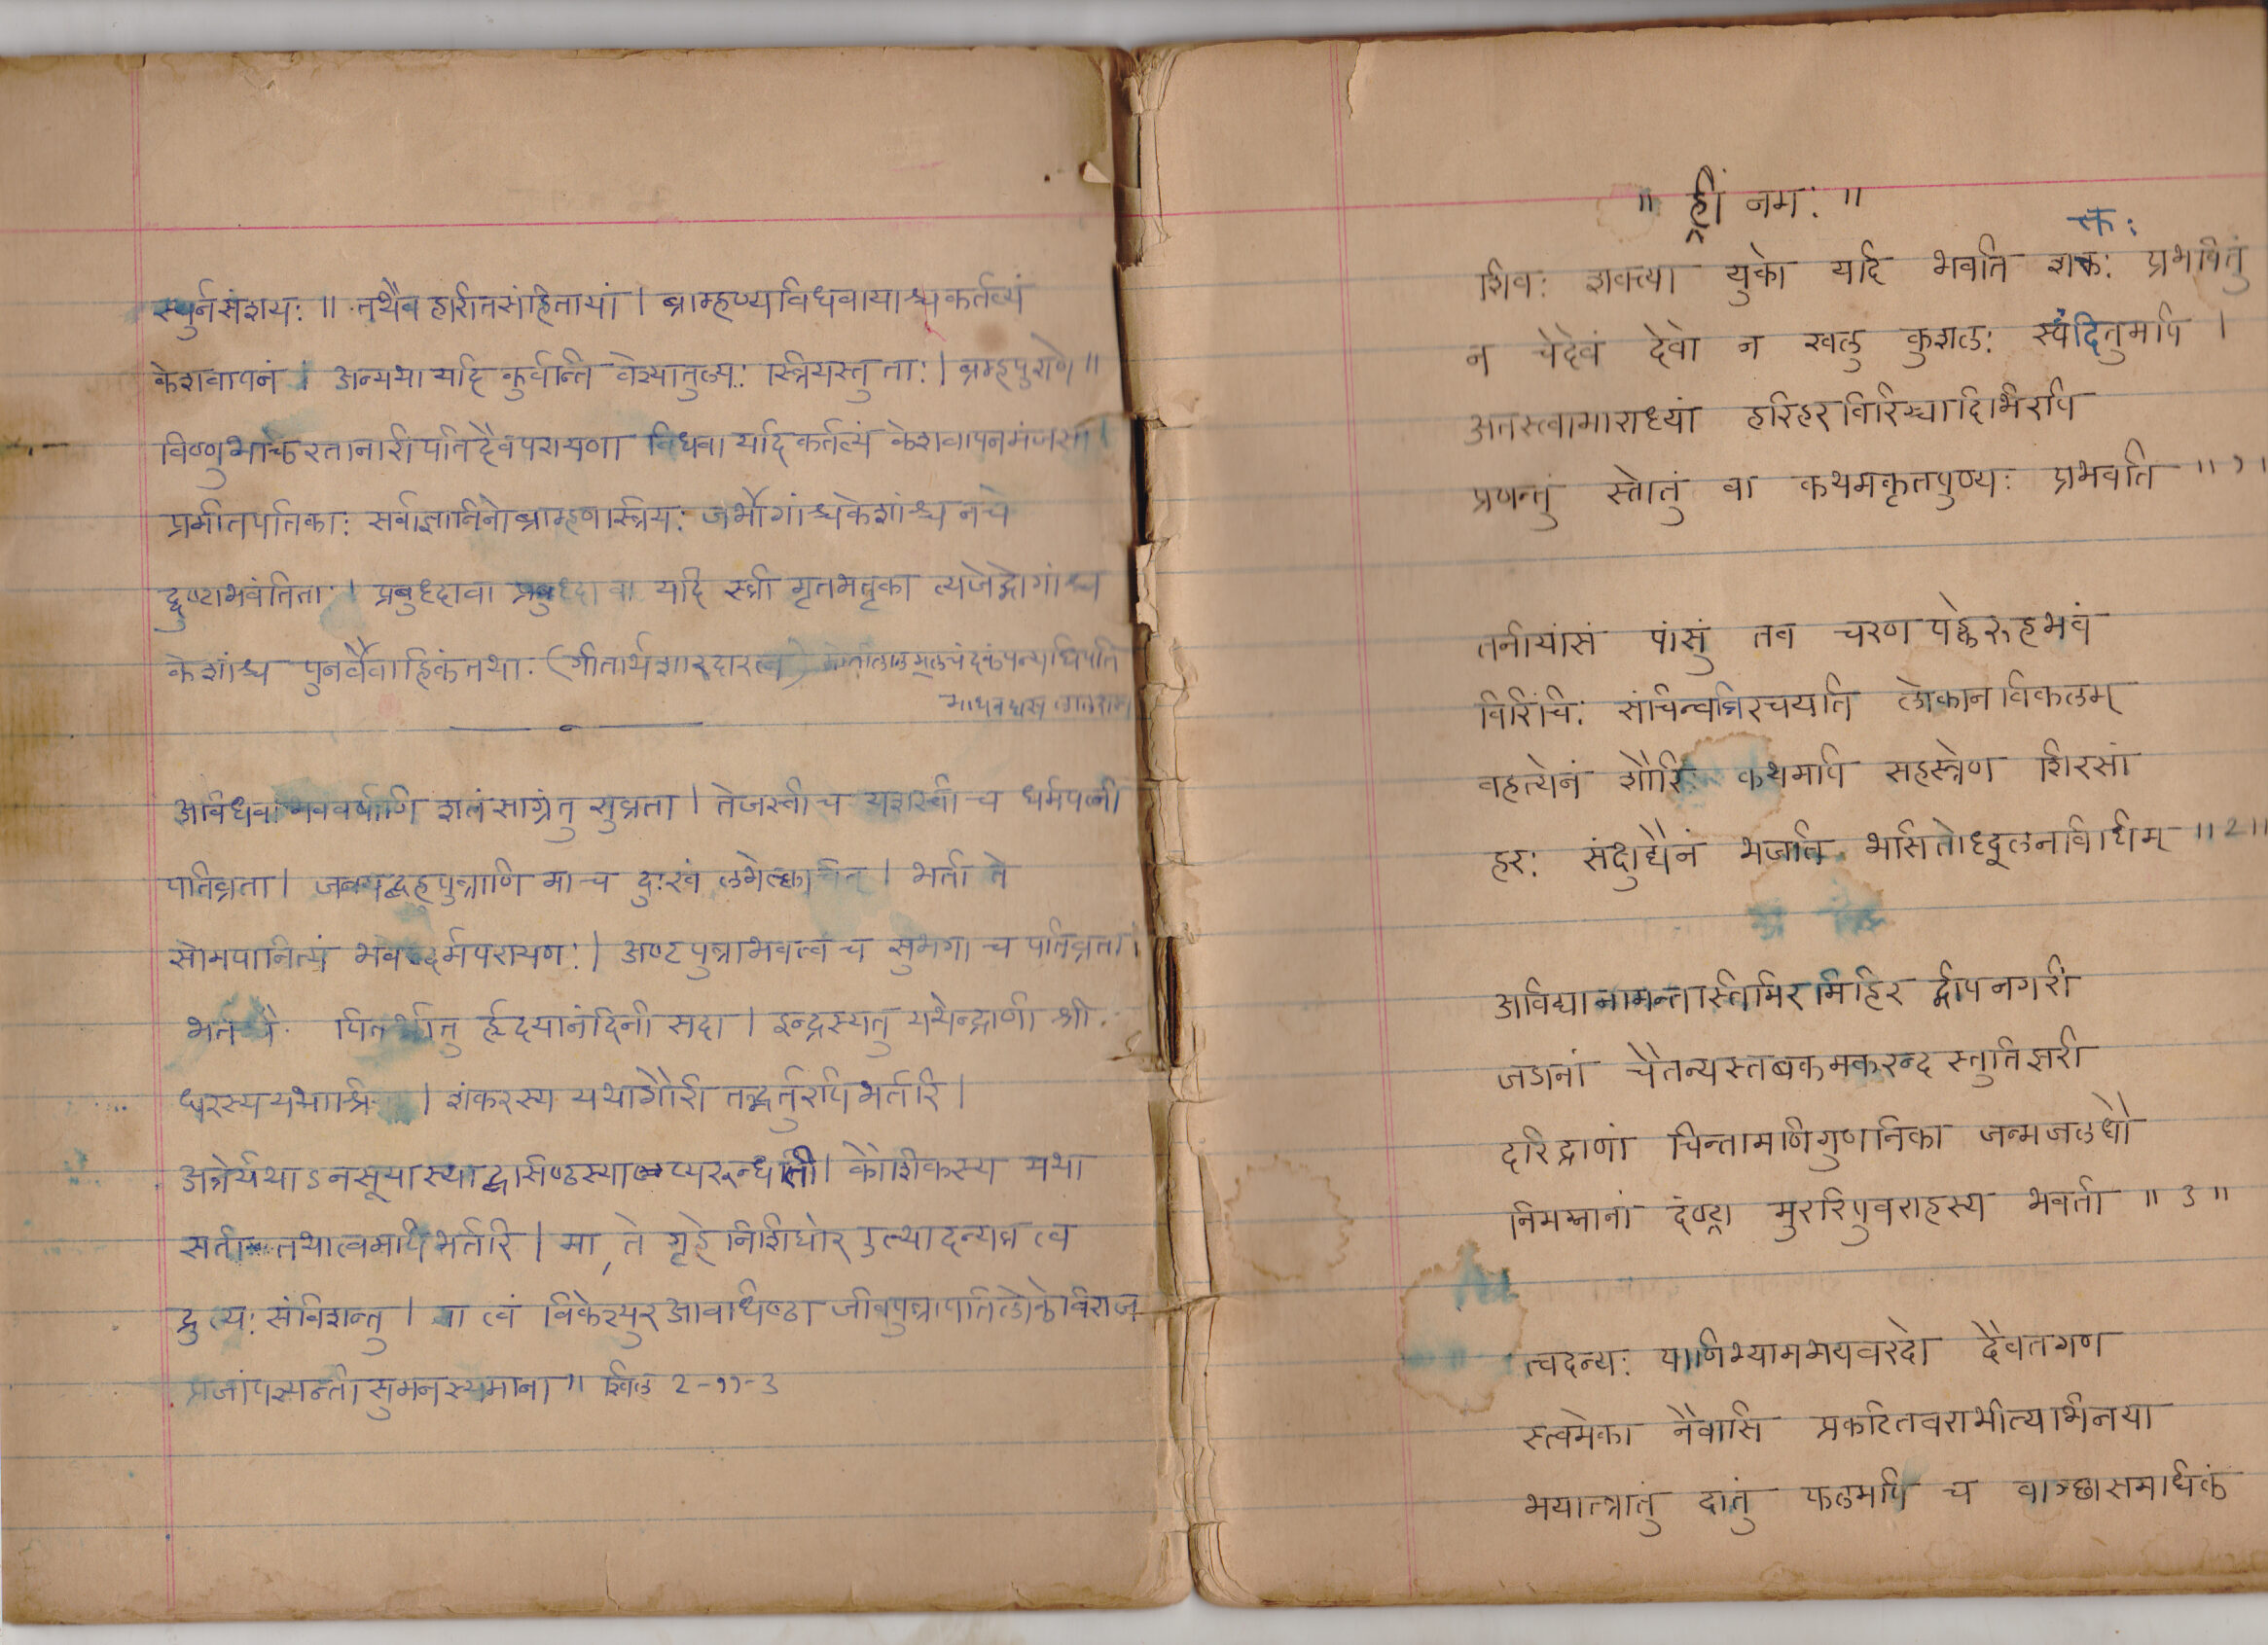 स्युर्नसंशयः ॥ तथैव हारीतसंहितायां । ब्राम्हण्यविधवायाश्च कर्तव्यं
केशवापनं । अन्यथा यदि कुर्वन्ति वेश्यातुल्यः स्त्रियस्तु ताः । ब्रम्हपुराणे ॥
विष्णुभक्तिरतानारी पतिदैवपरायणा विधवा यदि कर्तव्यं केशवापनमंजसा ।
प्रमीतपतिकाः सर्वा ब्राम्हणस्त्रियः केशांश्च नचे
द्दुष्टाभवंतिताः । प्रबुद्दावा वा यदि स्त्री मृतभतृका त्यजेद्भोगांश्च
केशांश्च पुनर्वैवाहिकंतथा. (गीतार्थशारदारत्न)
अविधवाभववर्षाणि शतंसाग्रंतु सुव्रता । तेजस्वी च यशस्वी च धर्मपत्नी
पतिव्रता । जनयद्बहुपुत्राणि मा च दुःखं लभेत्क्वचित् । भर्ता ते
सोमपानित्यं भवेद्धर्मपरायणः । अष्टपुत्राभवत्वं च सुभगा च पतिव्रता ।
हृदयानंदिनी सदा । इन्द्रस्यतु यथेन्द्राणी श्री.
धरस्य यथाश्रि । शंकरस्य यथागौरी तद्भर्तुरपि भर्तरि ।
अत्रेर्यथाऽनसूयास्याद्वसिष्ठस्याप्यरुन्धती । कौशिकस्य यथा
सती तथात्वमपि भर्तरि । मा, ते गृहे निशिघोर उत्यादन्यत्र त्व
द्रुत्यः संविशन्तु । मा त्वं विकेश्युर आवधिष्ठा जीवपुत्रापतिलोके विराज
प्रजांपश्यन्ती सुमनस्यमाना ॥ खिल २-११-३
॥ ह्रीं नमः ॥
क्तः
शिवः शक्त्या युक्तो यदि भवति शक्तः प्रभवितुं
न चेदेवं देवो न खलु कुशलः स्पंदितुमपि ।
अतस्त्वामाराध्यां हरिहरविरिञ्चादिभिरपि
प्रणन्तुं स्तोतुं वा कथमकृतपुण्यः प्रभवति ॥ १ ।
तनीयांसं पांसुं तव चरणपङ्केरुहभवं
विरिंचिः संचिन्वन्विरचयति लोकानविकलम्
वहत्येनं शौरिः कथमपि सहस्त्रेण शिरसां
हरः संक्षुद्यैनं भजति भसितोद्धूलनविधिम् ॥ २ ॥
अविद्यानामन्तस्तिमिरमिहिर द्वीपनगरी
जडानां चैतन्यस्तबकमकरन्द स्तुतिझरी
दरिद्राणां चिन्तामणिगुणनिका जन्मजलधौ
निमग्नानां दंष्ट्रा मुररिपुवराहस्य भवती ॥ ३ ॥
त्वदन्यः पाणिभ्यामभयवरदो दैवतगण
स्त्वमेका नैवासि प्रकटितवराभीत्यभिनया
भयात्त्रातुं दातुं फलमपि च वाञ्छासमधिकं